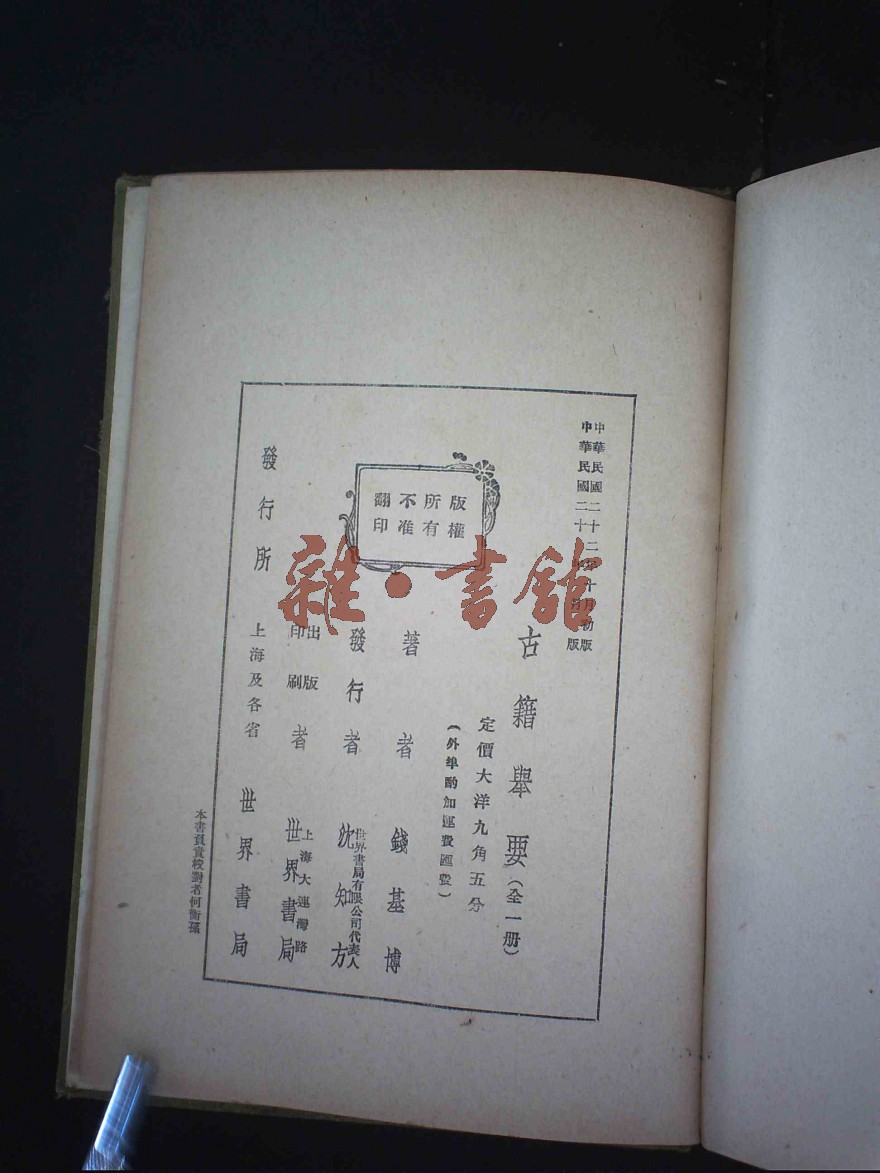 中華民國二十二年十月初版
中華民國二十
版
版權
所有
不准
翻印
古籍舉要(全一册)
定價大洋九角五分
(外埠酌加運費匯費)
著者 錢基博
發行者 世界書局有限公司代表人 沈知方
出版印刷者 上海大連灣路 世界書局
發行所 上海及各省 世界書局
本書負責校對者何衡孫
雜·書館